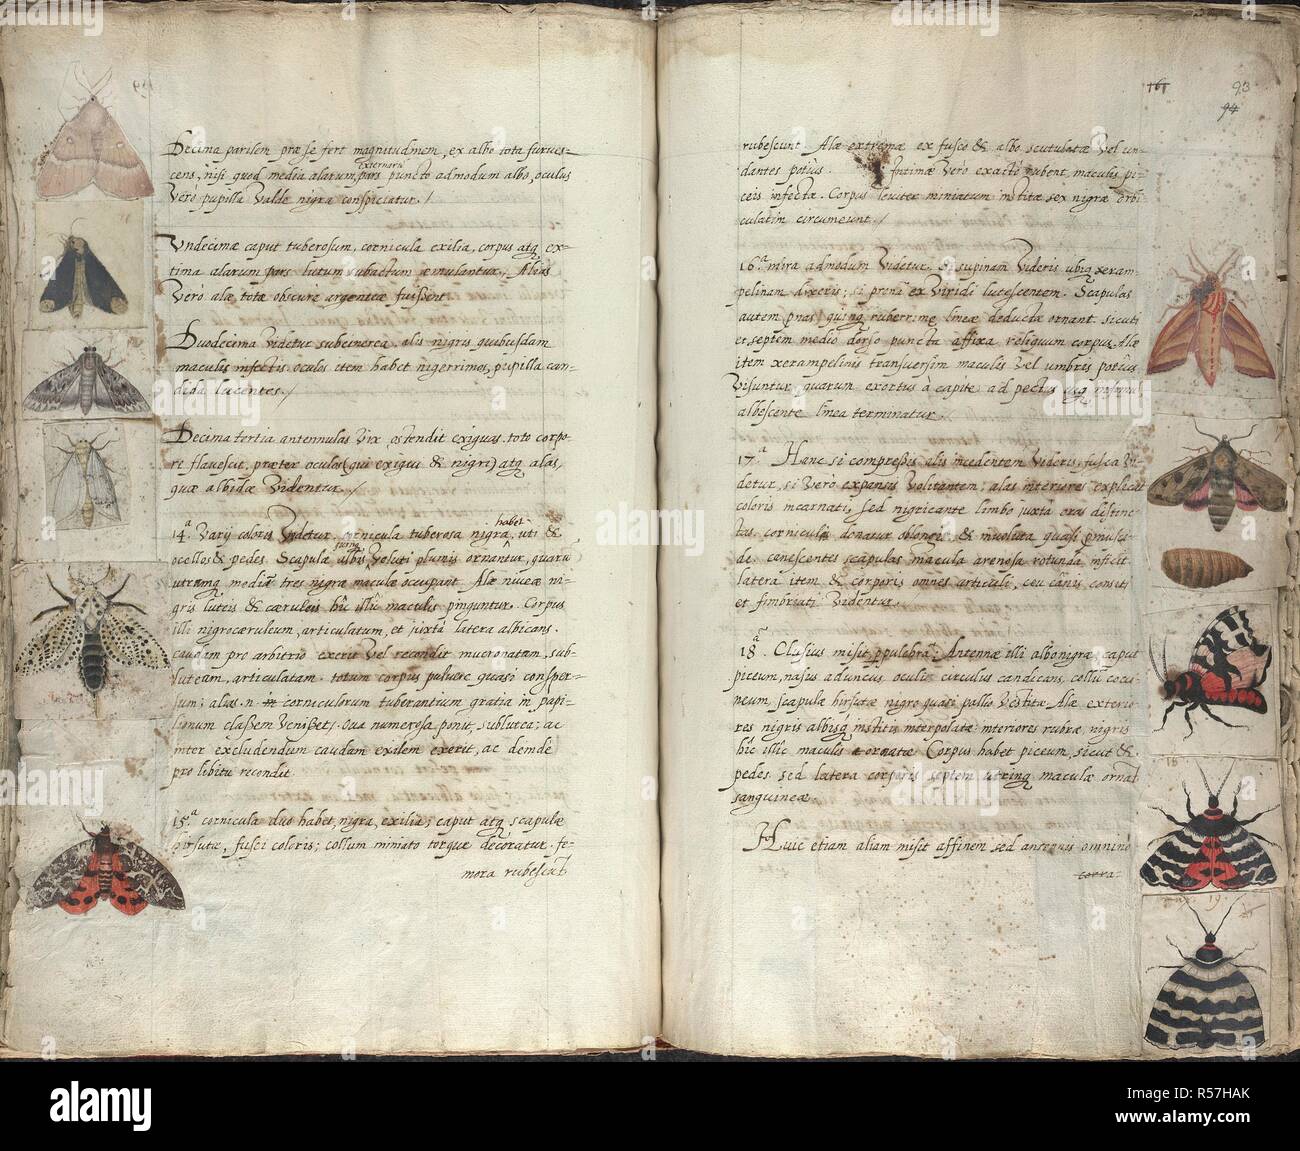 Decima parilem præ se fert magnitudinem, ex albo tota furves-
externoru
cens, nisi quod media alarum pars puncto admodum albo, oculus
Verò pupilla Valde nigra conspiciatur. /
Undecimæ caput tuberosum, cornicula exilia, corpus atq ex-
tima alarum pars lutum subactum æmulantur. Alias
Verò alæ totæ obscure argenteæ fuissent.
Duodecima Videtur subcinerea, alis nigris quibusdam
maculis infectis. oculos item habet nigerrimos, pupilla can-
dida lucentes. /
Decima tertia antennulas Vix ostendit exiguas. toto corpo-
re flavescit, præter oculos (qui exigui & nigri) atq alas,
quæ albidæ Videntur. /
habet
14.a Varij coloris Videtur. cornicula tuberosa nigra, uti &
ocellos & pedes. Scapulæ albis Veluti plumis ornantur, quarum
utramq mediam tres nigræ maculæ occupant. Alæ niveæ ni-
gris luteis & cæruleis hic illic maculis pinguntur. Corpus
illi nigrocæruleum, articulatum, et juxta latera albicans.
caudam pro arbitrio exerit Vel recondit mucronatam, sub-
luteam, articulatam. totum corpus pulvere quasi consper-
sum; alias n. corniculorum tuberantium gratia in papi-
lionum classem Venisset. Ova numerosa ponit, sublutea; ac
inter excludendum caudam exilem exerit, ac deinde
pro libitu recondit.
15.a cornicula duo habet, nigra, exilia; caput atq scapulæ
hirsutæ, fusci coloris; collum miniato torque decoratur. fe-
mora rubescunt
161
93
94
rubescunt. Alæ extremæ ex fusco & albo scutulatæ Vel un-
dantes potius. Intimæ Verò exactè rubent, maculis pi-
ceis infectæ. Corpus leviter miniatum institæ sex nigræ orbi-
culatim circumeunt. /
16.a mira admodum Videtur. si supinam Videris ubiq xeram-
pelinam dixeris; si pronam ex Viridi lutescentem. Scapulas
autem quinq ruberrimæ lineæ deductæ ornant. sicuti
et septem medio dorso puncta affixa reliquum corpus. Alæ
item xerampelinis transversim maculis Vel umbres potius
Visuntur. quarum exortus à capite ad pectus usq
albescente linea terminatur.
17.a Hanc si compressis alis incedentem Videris, fusca Vi-
detur, si Verò expansis Volitantem; alas interiores explicat
coloris incarnati, sed nigricante limbo juxta oras distinc-
tas. corniculis donatur oblongis & involuta quasi
de. canescentes scapulas macula arenosa rotunda inficit.
latera item & corporis omnes articuli, ceu canis consiti
et fimbriati Videntur.
18.a Clusius misit, perpulchra; Antennæ illi albonigræ, caput
piceum, nasus aduncus, oculi circulis candicans, collum cocci-
neum, scapulæ hirsutæ nigro quasi pallio Vestitæ. Alæ exterio-
res nigris albisq institis interpolatæ. interiores rubræ, nigris
hic illic maculis ornatæ. Corpus habet piceum, sicut &
pedes. sed latera corporis septem utrinq maculæ ornant
sanguineæ.
Huic etiam aliam misit affinem sed
18
19.